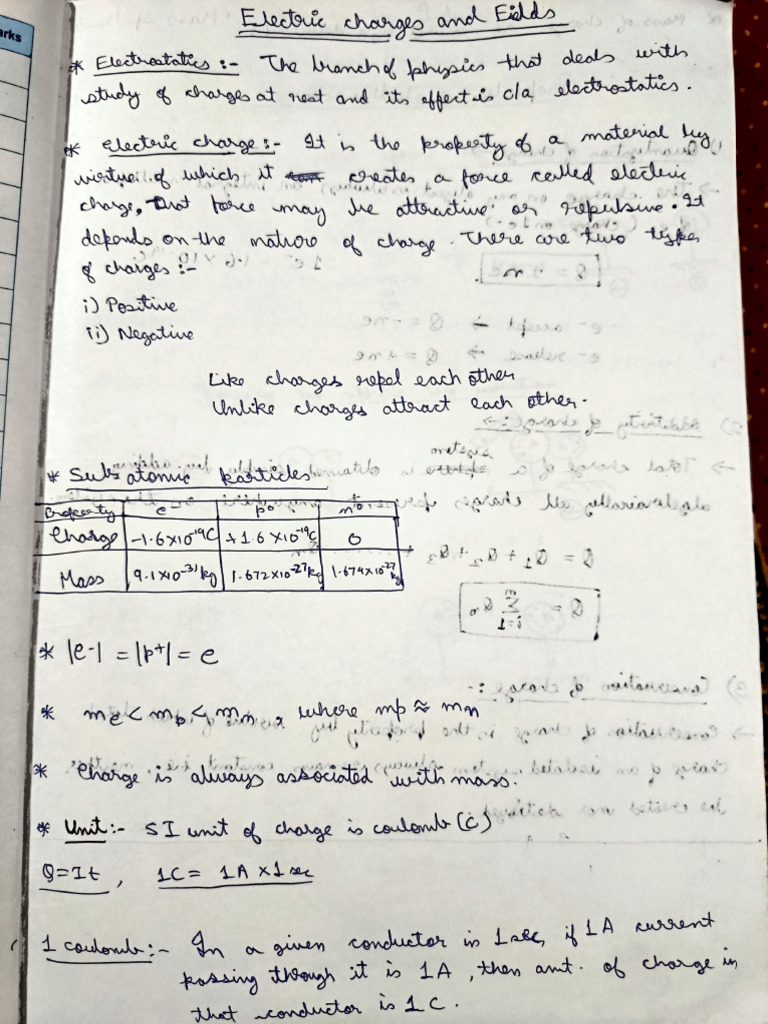 arks
Electric charges and Fields
* Electrostatics :- The branch of physics that deals with
study of charges at rest and its effect is c/a electrostatics.
* Electric charge :- It is the property of a material by
virtue of which it creates a force called electric
charge, that force may be attractive or repulsive. It
depends on the nature of charge. There are two types
of charges :-
i) Positive
ii) Negative
Like charges repel each other
Unlike charges attract each other.
* Sub atomic particles
Property e⁻ p⁺ n⁰
Charge -1.6×10⁻¹⁹C +1.6×10⁻¹⁹C 0
Mass 9.1×10⁻³¹kg 1.672×10⁻²⁷kg 1.674×10⁻²⁷kg
* |e-| = |p+| = e
* me < mp < mn, where mp ≈ mn
* Charge is always associated with mass.
* Unit :- SI unit of charge is coulomb (C)
Q=It, 1C = 1A × 1 sec
1 coulomb :- In a given conductor in 1 sec, if 1A current
passing through it is 1A, then amt. of charge in
that conductor is 1C.